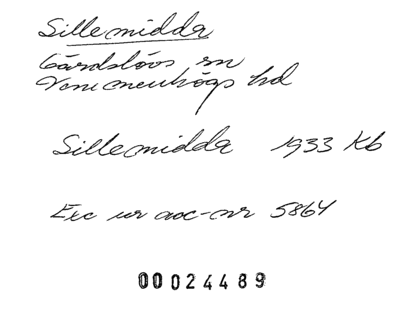 Sillemidda
Gärdslövs sn
Vemmenhögs hd
Sillemidda 1933 Kb
Exc ur acc-nr 5864
00024489